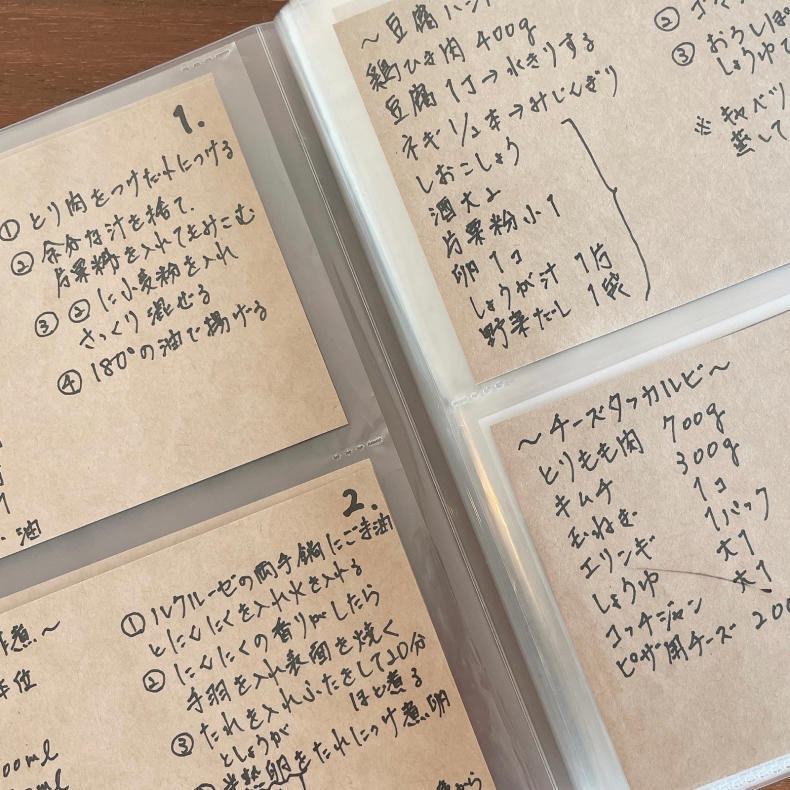 1.
① とり肉をつけだれにつける
② 余分な汁を捨て、
片栗粉を入れてもみこむ
③ ②に小麦粉を入れ
さっくり混ぜる
④ 180°の油で揚げる
油
2.
煮〜
① ルクルーゼの両手鍋にごま油
とにんにくを入れ火を入れる
② にんにくの香りがしたら
手羽を入れ表面を焼く
③ たれを入れふたをして20分
としょうが ほど煮る
半熟卵をたれにつけ煮卵
00ml
〜豆腐ハン
鶏ひき肉 400g
豆腐 1丁→水きりする
ネギ 1/2本→みじんぎり
しおこしょう
酒 大2
片栗粉 小1
卵 1コ
しょうが汁 1片
野菜だし 1袋
②
③ おろしぽ
しょうゆで
※ キャベツ
蒸して
〜チーズタッカルビ〜
とりもも肉 700g
キムチ 300g
玉ねぎ 1コ
エリンギ 1パック
しょうゆ 大1
コッチジャン 大1
ピザ用チーズ 200